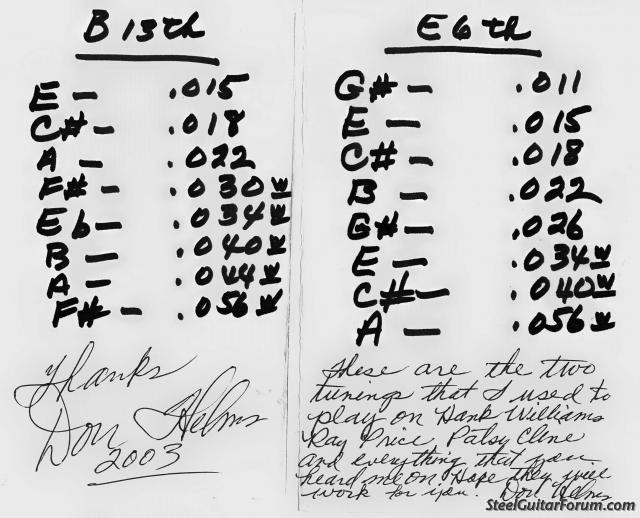 B 13th
E - .015
C# - .018
A - .022
F# - .030 w
Eb - .034 w
B - .040 w
A - .044 w
F# - .056 w
Thanks
Don Helms
2003
E 6th
G# - .011
E - .015
C# - .018
B - .022
G# - .026
E - .034 w
C# - .040 w
A - .056 w
These are the two
tunings that I used to
play on Hank Williams
Ray Price, Patsy Cline
and everything that you
heard me on Hope they will
work for you. Don Helms
SteelGuitarForum.com